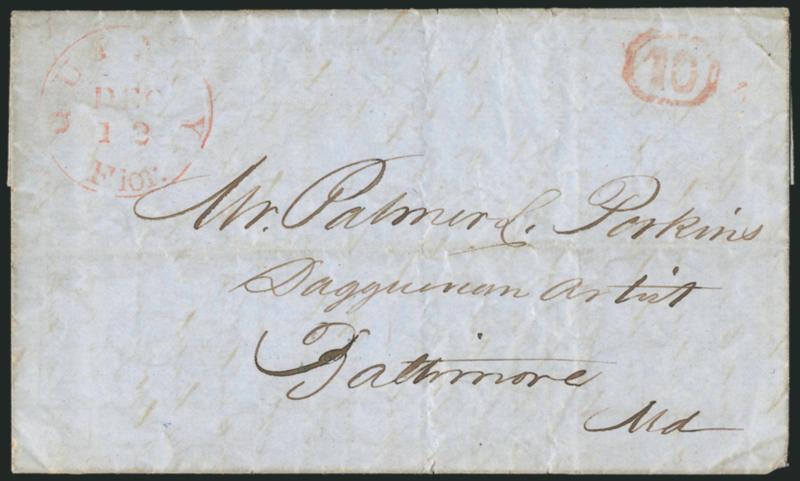 QUINCY
DEC
12
Flor.
10
Mr. Palmer L. Perkins
Dagguerian Artist
Baltimore
Md